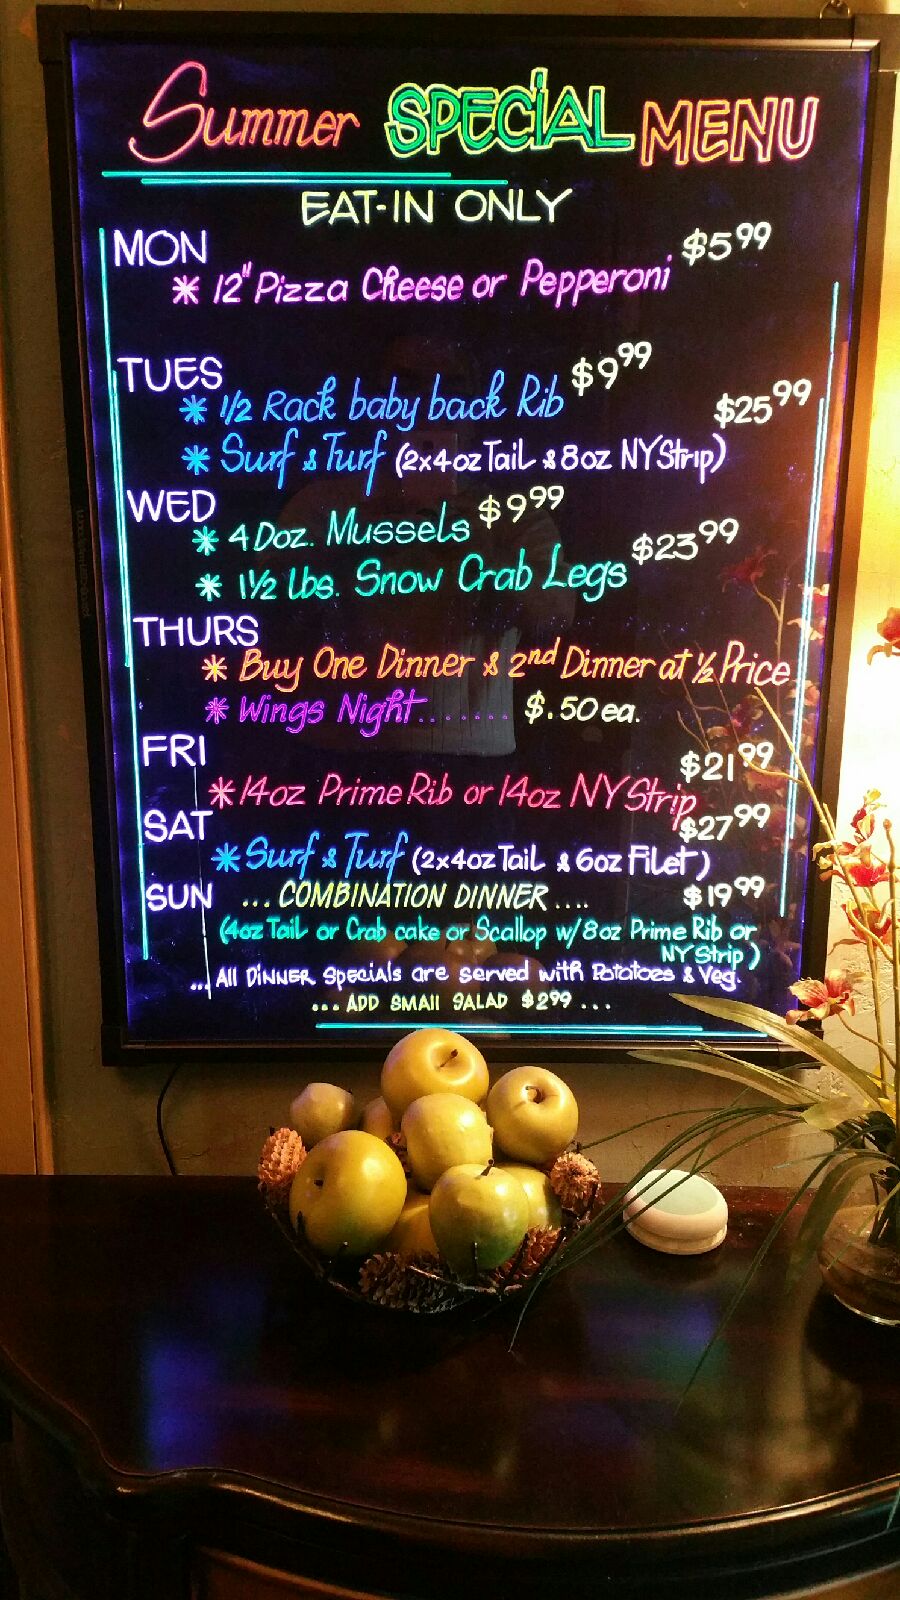 Summer SPECIAL MENU
EAT-IN ONLY
MON $5.99
* 12" Pizza Cheese or Pepperoni
TUES $9.99
* 1/2 Rack baby back Rib $25.99
* Surf & Turf (2x4oz Tail & 8oz NY Strip)
WED $9.99
* 4 Doz. Mussels $23.99
* 1 1/2 lbs. Snow Crab Legs
THURS
* Buy One Dinner & 2nd Dinner at 1/2 Price
* Wings Night....... $.50 ea.
FRI $21.99
* 14oz Prime Rib or 14oz NY Strip
SAT $27.99
* Surf & Turf (2x4oz Tail & 6oz Filet)
SUN ... COMBINATION DINNER .... $19.99
(4oz Tail or Crab cake or Scallop w/ 8oz Prime Rib or
NY Strip)
... All DiNNER Specials are served with Potatoes & Veg.
... ADD SMAll SALAD $2.99 ...